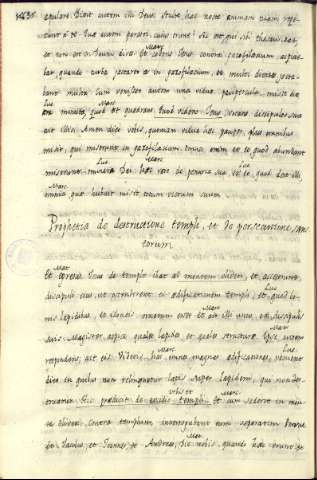 epulare. Dixit autem illi Deus stulte, hac nocte animam tuam repe-
tunt a te. Quae autem parasti, cuius erunt? Sic est, qui sibi thesau
et non est in Deum dives
Marc
et sedens Jesus contra gazofilacium, aspicie-
bat quomodo turba jactaret in gazofilacium, et multi divites jacta-
bant multa. Cum venisset autem una vidua paupercula, misit
Luc Marc
minuta, quod est quadrans. Convocans discipulos suos
ait illis. Amen dico vobis, quoniam vidua haec pauper, plus omnibus
misit, qui miserunt in gazofilacium. omnes enim ex eo quod abundant
Luc Marc Luc
miserunt munera Dei. haec vero de penuria sua
Marc
omnia quae habuit misit totum victum suum
Prophetia de destructione templi, et de persecutione sanc-
torum
Mat
Et egressus Jesus de templo ibat ad montem oliveti, et accesserunt
Luc
discipuli eius, ut ostenderent ei aedificationem templi, et quod bo-
Mat Marc
nis lapidibus, et donis ornatum esset et ait illi unus ex discipulis
Mat
suis. Magister aspice quales lapides, et quales structurae. Ipse autem
Marc Luc
respondens, ait eis. Videtis has omnes magnas aedificationes, venient
Marc
dies in quibus non relinquetur lapis super lapidem, qui non des-
truatur.
vobis Marc
Sic praedicit de exidio templi. Et cum sederet in mon-
te oliveti contra templum, interrogabant eum separatim Petrus
Mat
et Jacobus, et Joannes, et Andreas, dic nobis, quando haec erunt, et